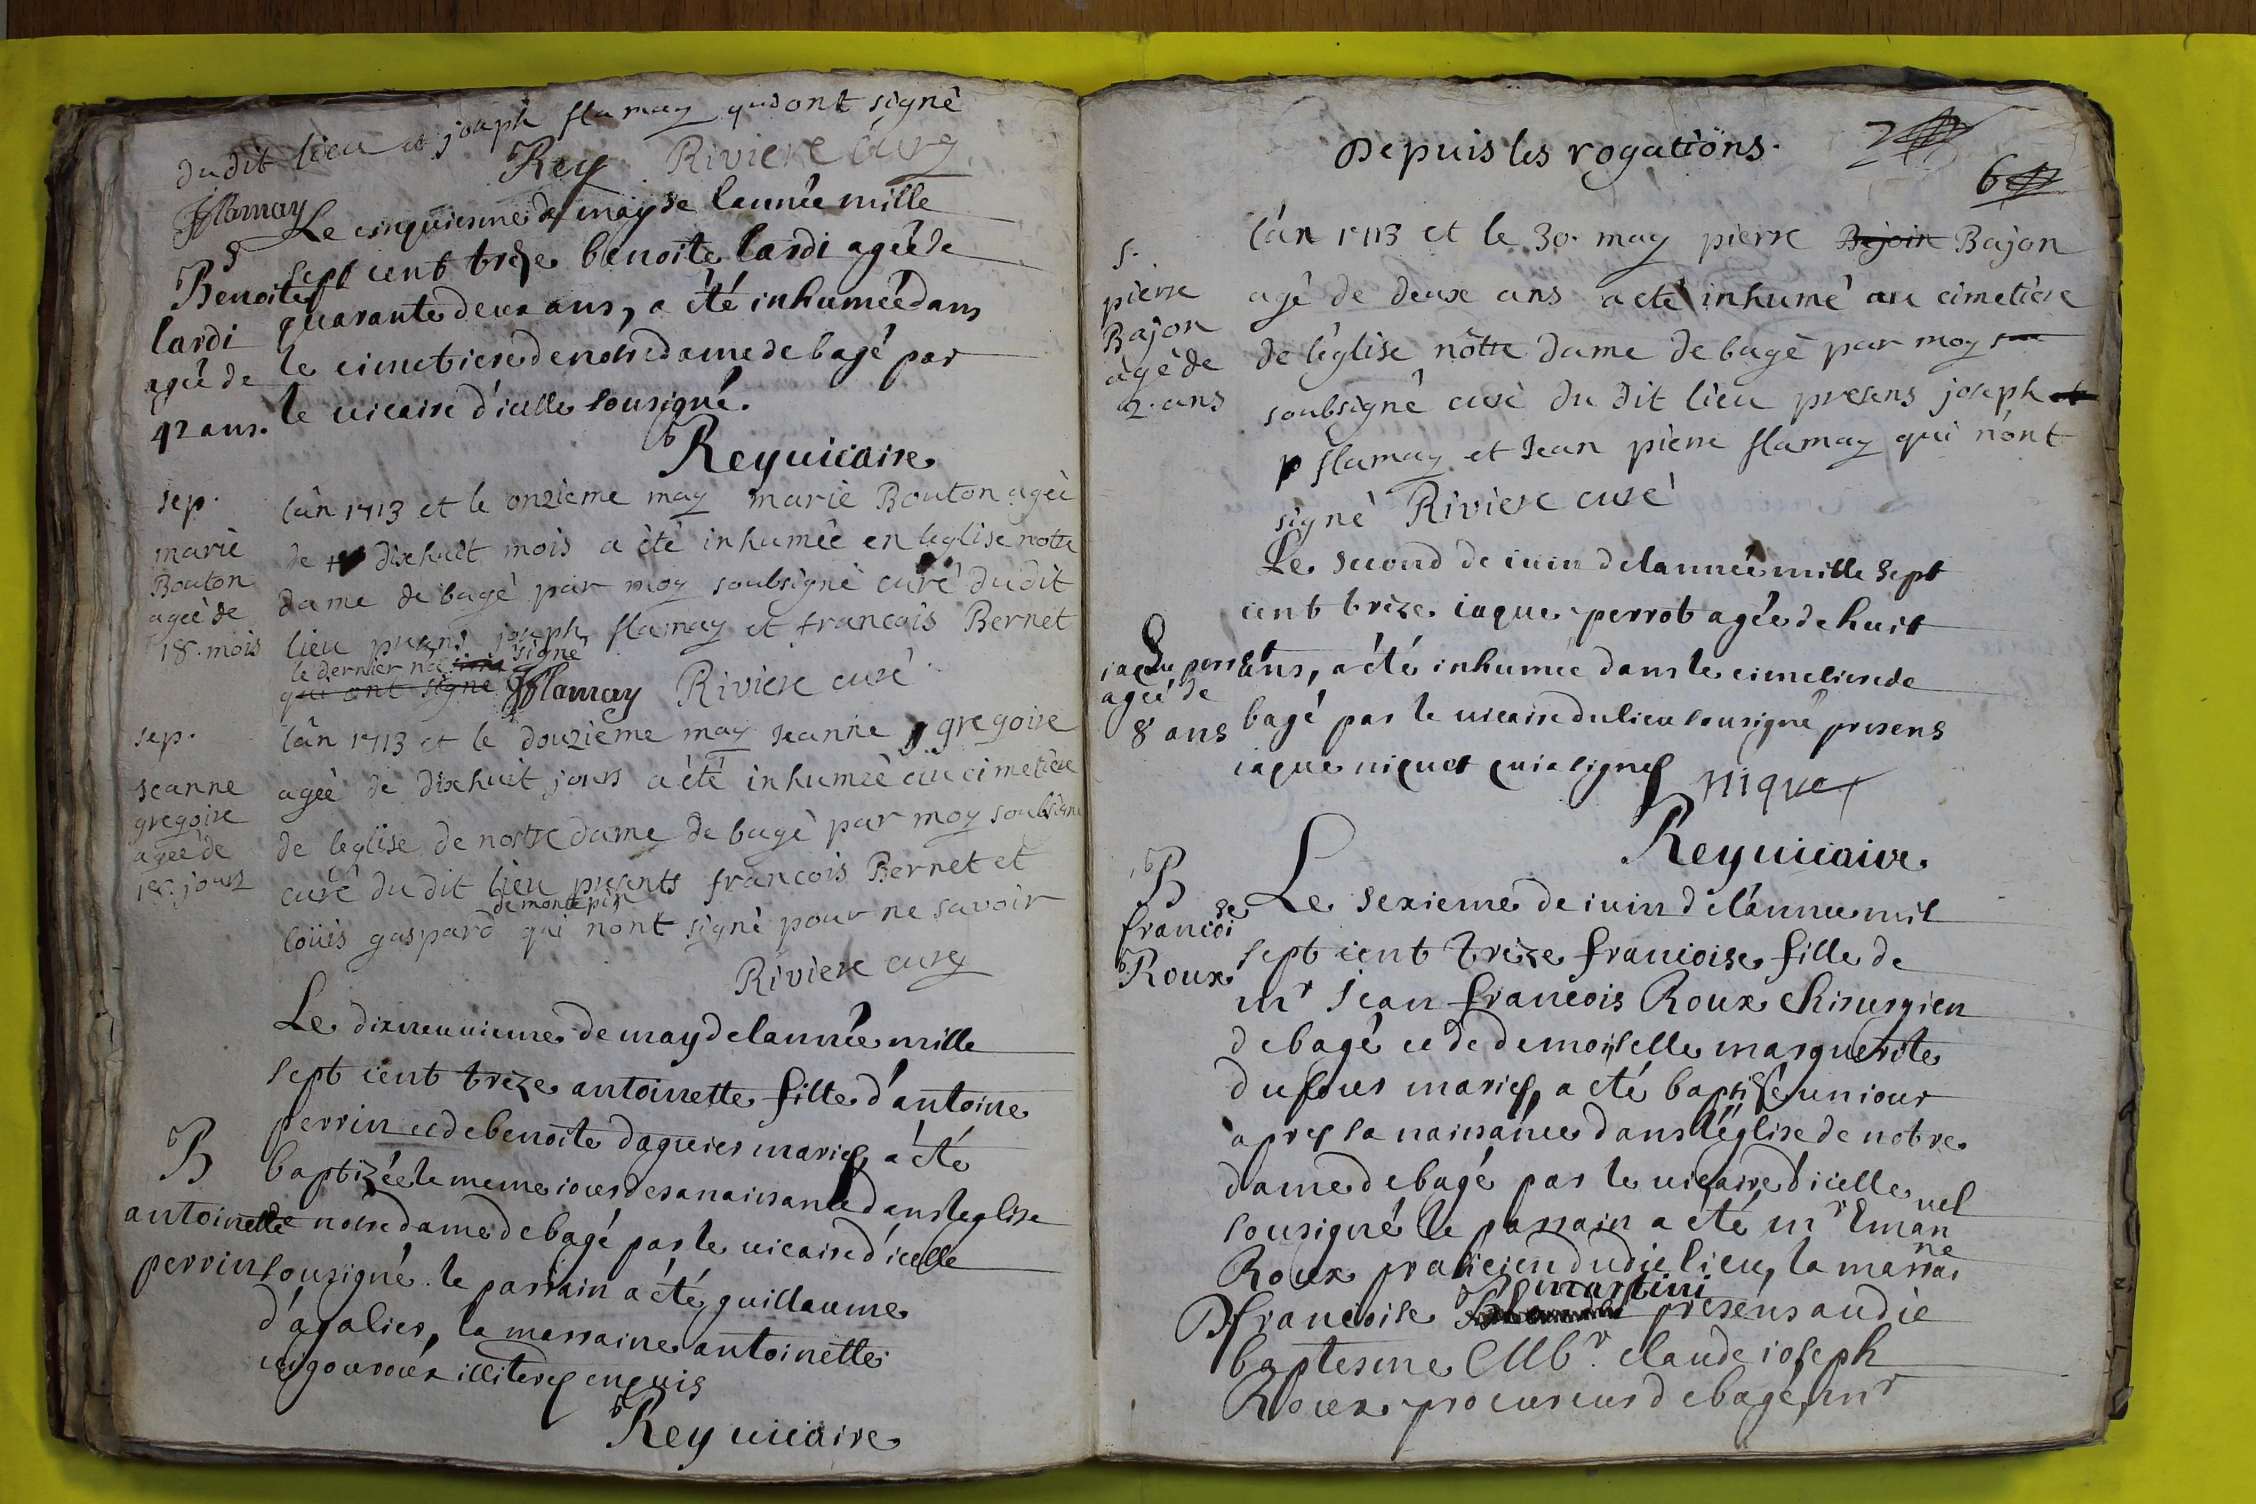 du dit lieu et joseph flamay qui ont signé
Rey Riviere curé
JFlamay
Le cinquiesme de may de lannée mille
S
Benoite
lardi
agée de
42 ans.
sept cent treze benoite lardi agée de
quarante deux ans, a été inhumée dans
le cimetiere de notre dame de bagé par
le vicaire d'icelle sousigné.
Rey vicaire
sep.
marie
Bouton
ageè de
18. mois
l'ân 1713 et le onzieme may marie Bouton ageè
de dixhuit mois a èté inhumêe en leglise notte
dame de bagè par moy soubsignè curè du dit
lieu presens joseph flamay et francois Bernet
le dernier na signè
qui ont signe JFlamay Riviere curé
sep.
jeanne
gregoire
ageè de
18. jours
l'ân 1713 et le douzieme may jeanne gregoire
ageè de dixhuit jours a èté inhumeè au cimetiere
de leglise de nostre dame de bagè par moy soubsigne
curè du dit lieu presents francois Bernet et
loüis gaspard de montepin qui nont signè pour ne savoir
Riviere curé
Le dixneuvieme de may de lannée mille
sept cent treze antoinette fille d'antoine
perrin et de benoite daguier mariés, a été
B
antoinette
perrin
baptizée le meme iour de sa naissance dans leglise
de notre dame de bagé par le vicaire d'icelle
sousigné. le parrain a été guillaume
d'agalier, la marraine antoinette
vigouroux illiterés enquis
Rey vicaire
Depuis les rogations.
2
6
s.
pierre
Bajon
àgè de
2. ans
l'ân 1713 et le 30. may pierre Bejoin Bajon
agè de deux ans a eté inhumè au cimetiere
de lèglise nôtte dame de bagè par moy
soubsignè curè du dit lieu presens joseph
flamay et jean pierre flamay qui n'ont
signè Riviere curè
Le second de iuin de lannée mille sept
cent treze iaque perrot agée de huit
S
iaque perrot
agée de
8 ans
ans, a été inhumée dans le cimetiere de
bagé par le vicaire du lieu sousigné presens
iaque niquet qui a signé niquet
Rey vicaire
B
francoise
Roux
Le sexieme de iuin de lánnée mil
sept cent treze francoise fille de
mr Jean francois Roux chirurgien
de bagé et de demoiselle marguerite
dufour mariés, a été baptizée un iour
apres sa naissance dans l'église de notre
dame de bagé par le vicaire d'icelle
sousigné le parrain a été mr Emanuel
Roux praticien dudit lieu, la marraine
Dlle francoise martini presens audit
baptesme Mr claude ioseph
Roux procureur de bagé, mr